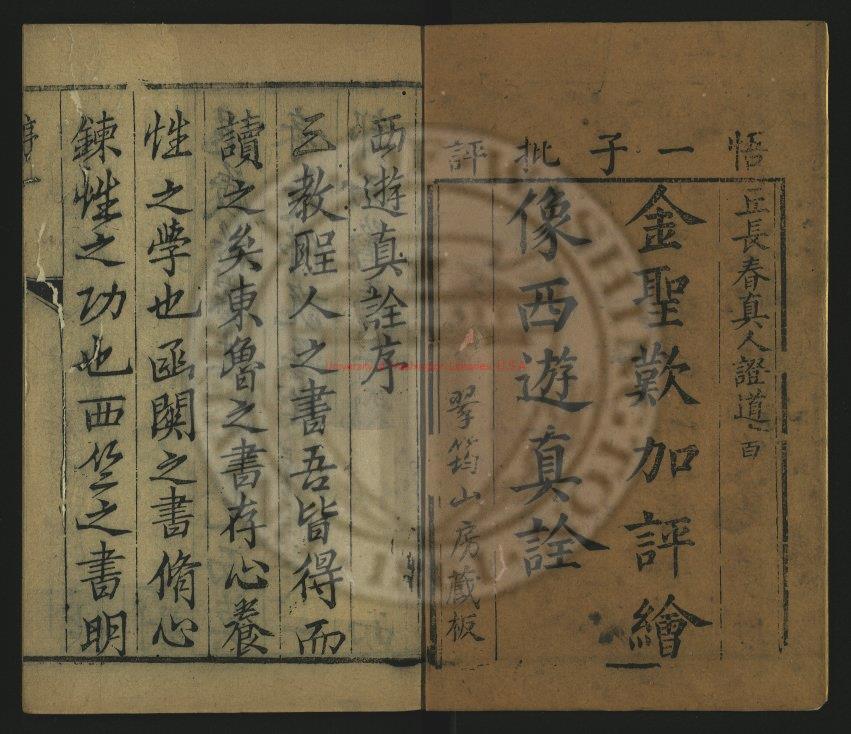 悟一子批評
丘長春真人證道書
金聖歎加評繪
像西遊真詮
翠筠山房藏板
西遊真詮序
三教聖人之書吾皆得而
讀之矣東魯之書存心養
性之學也函關之書脩心
鍊性之功也西竺之書明
University of Washington Libraries, U.S.A.